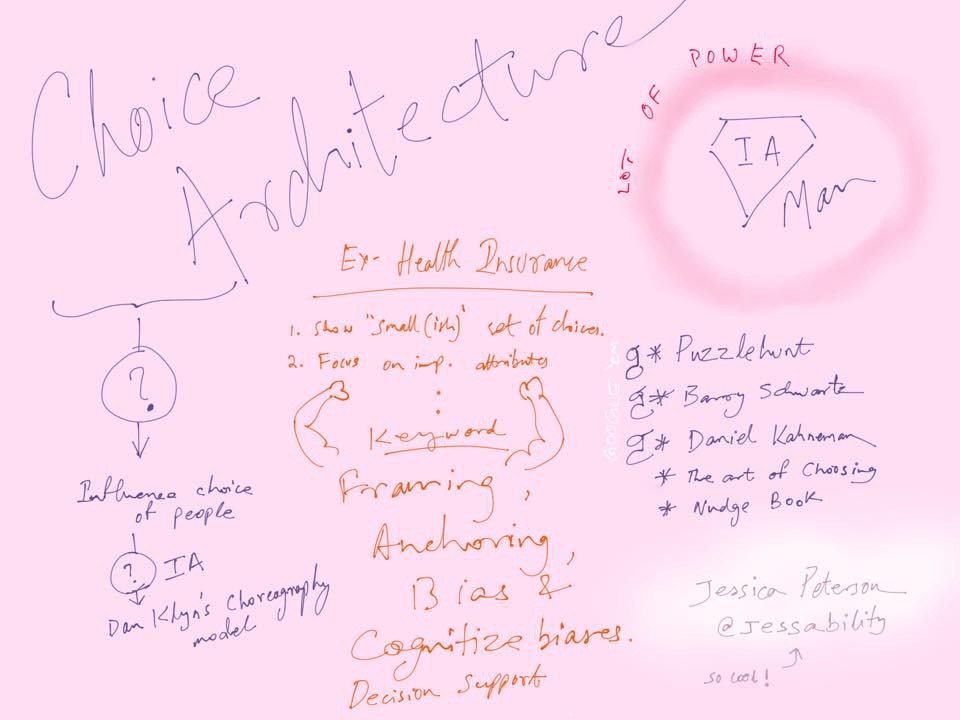 Choice
Architecture
LOT OF POWER
IA
Man
Ex- Health Insurance
1. Show "small(ish)" set of choices.
2. Focus on imp. attributes
Keyword
Framing,
Anchoring,
Bias &
Cognitize biases.
Decision Support
?
Influence choice
of people
? IA
Dan Klyn's Choreography
model
g* Puzzlehunt
g* Barry Schwartz
g* Daniel Kahneman
* The art of Choosing
* Nudge Book
Jessica Peterson
@jessability
so cool!